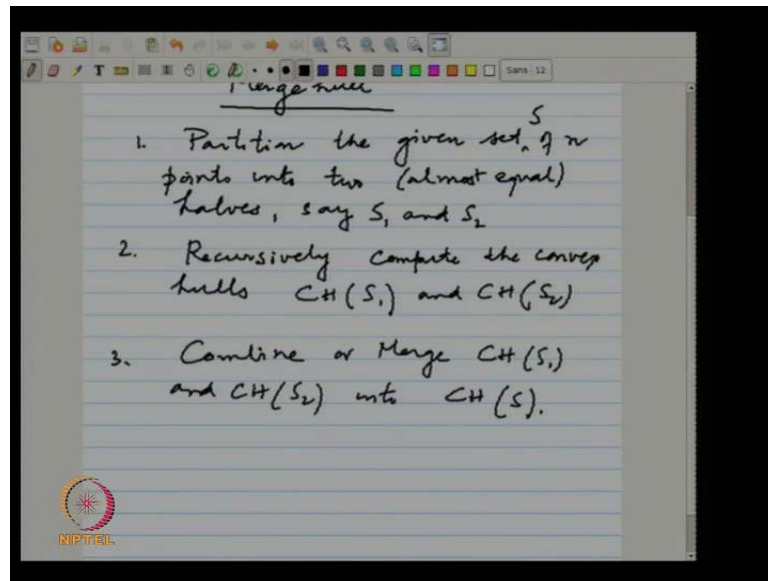 Sans 12
Merge hull
S
1. Partition the given set of n
points into two (almost equal)
halves, say S₁ and S₂
2. Recursively compute the convex
hulls CH(S₁) and CH(S₂)
3. Combine or Merge CH(S₁)
and CH(S₂) into CH(S).
NPTEL